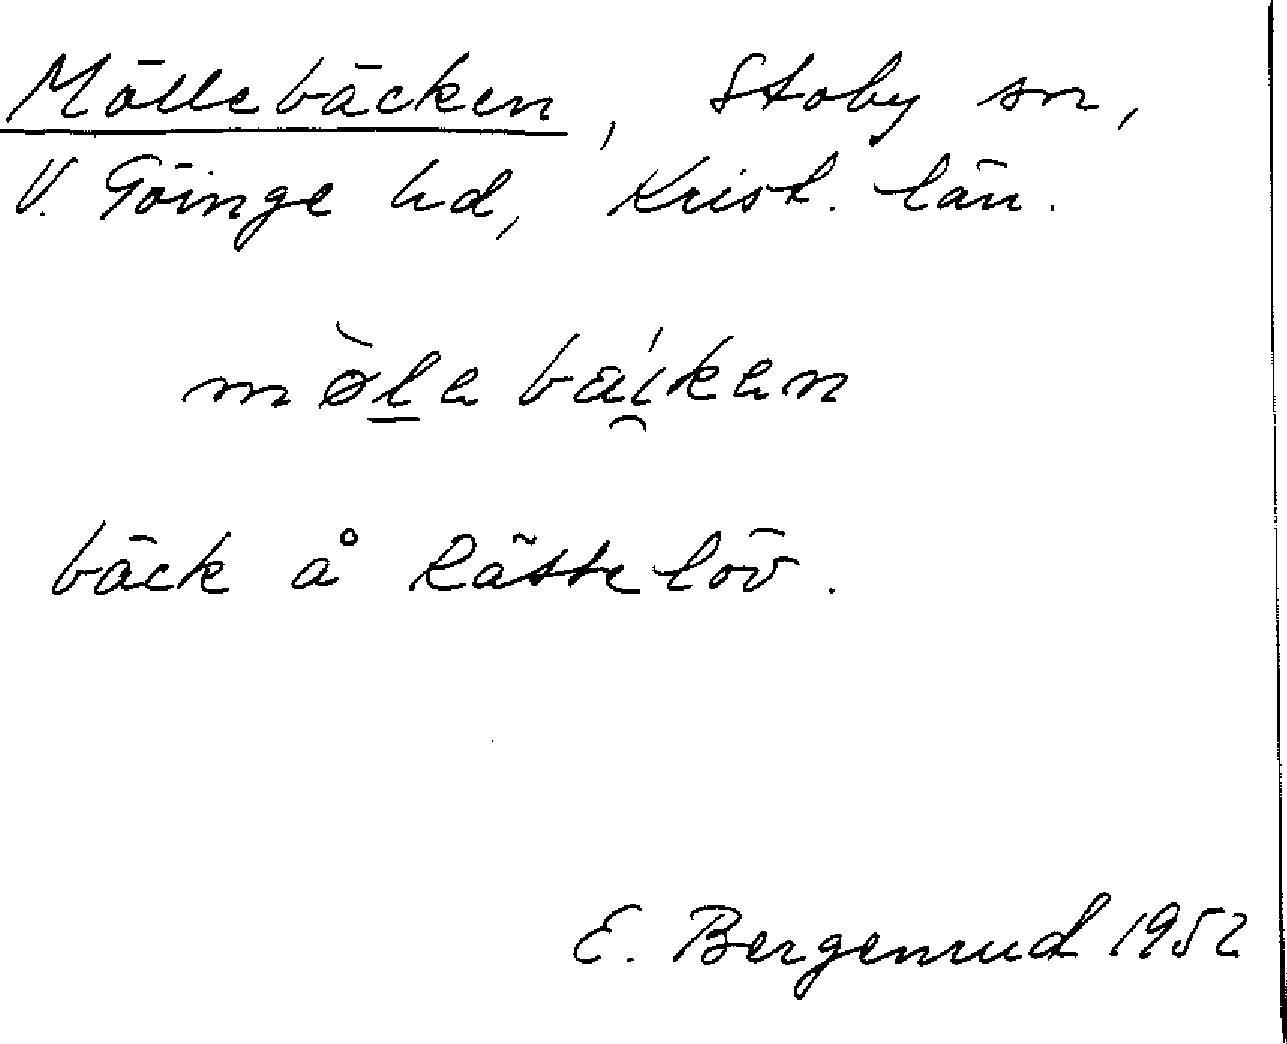 Möllebäcken, Stoby sn,
V. Göinge hd, Krist. län.
mø̀la baí̯kan
bäck å Rättelöv.
E. Bergenrud 1952